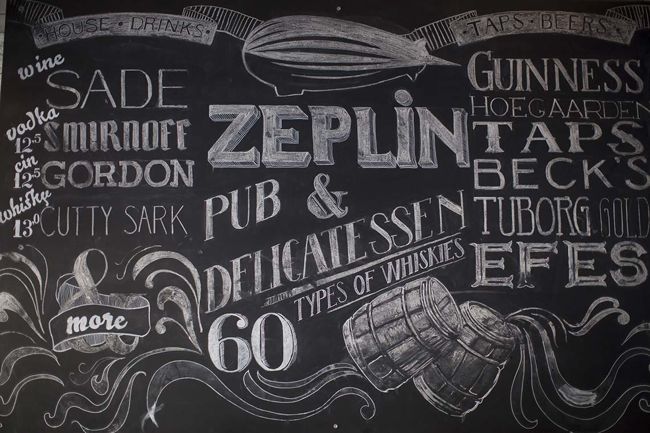 HOUSE · DRINKS
wine
SADE
vodka
12.5
SMIRNOFF
cin
12.5
GORDON
whisky
13.0
CUTTY SARK
&
more
ZEPLİN
PUB &
DELICATESSEN
60 TYPES OF WHISKIES
TAPS · BEERS
GUINNESS
HOEGAARDEN
TAPS
BECK'S
TUBORG GOLD
EFES